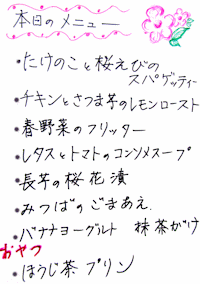 本日のメニュー
・たけのこと桜えびの
スパゲッティー
・チキンとさつま芋のレモンロースト
・春野菜のフリッター
・レタスとトマトのコンソメスープ
・長芋の桜花漬
・みつばのごまあえ
・バナナヨーグルト 抹茶がけ
おやつ
・ほうじ茶プリン